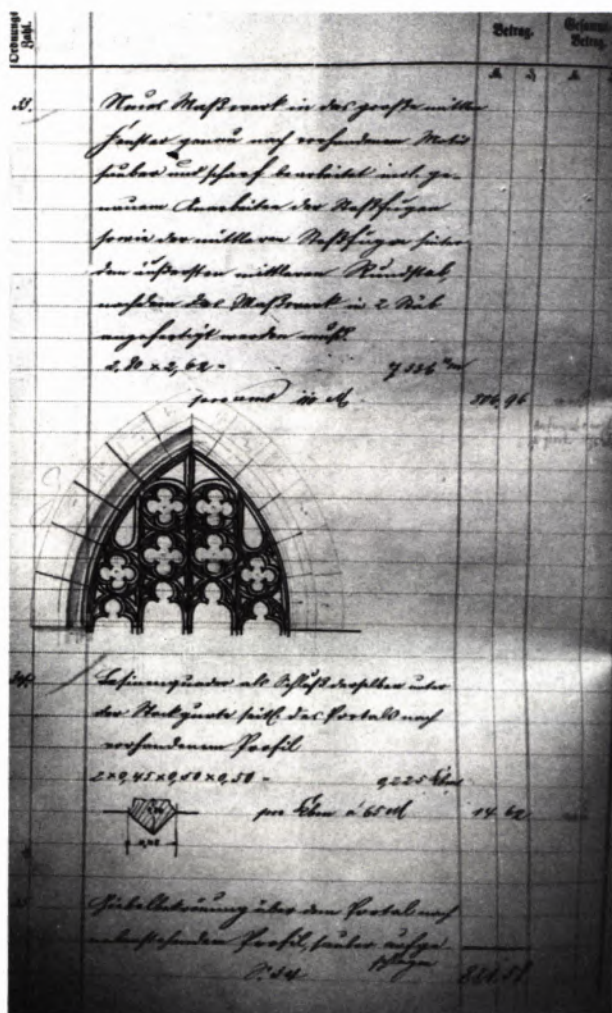 Ordnungs Zahl.
Betrag.
Gesammt Betrag.
33.
Neues Maßwerk in das große mittlere
Fenster genau nach vorhandenem Motiv
sauber und scharf bearbeitet incl. ge-
nauem Anarbeiten der Stoßfugen
sowie der mittleren Stoßfuge hinter
dem äußersten mittleren Rundstab,
nachdem das Maßwerk in 2 Stück
angefertigt werden muß.
2,80 x 2,62 = 7,336 □m
506,96
34.
Lesinenquader als Schluß derselben unter
der seitl. des Portals nach
vorhandenem Profil
2 x 0,45 x 0,50 x 0,50 = 0,225 Kbm
pro Kbm á 65 M 14 62
0,45
35
Giebelbekrönung über dem Portal nach
nebenstehendem Profil, sauber aufge
schlagen